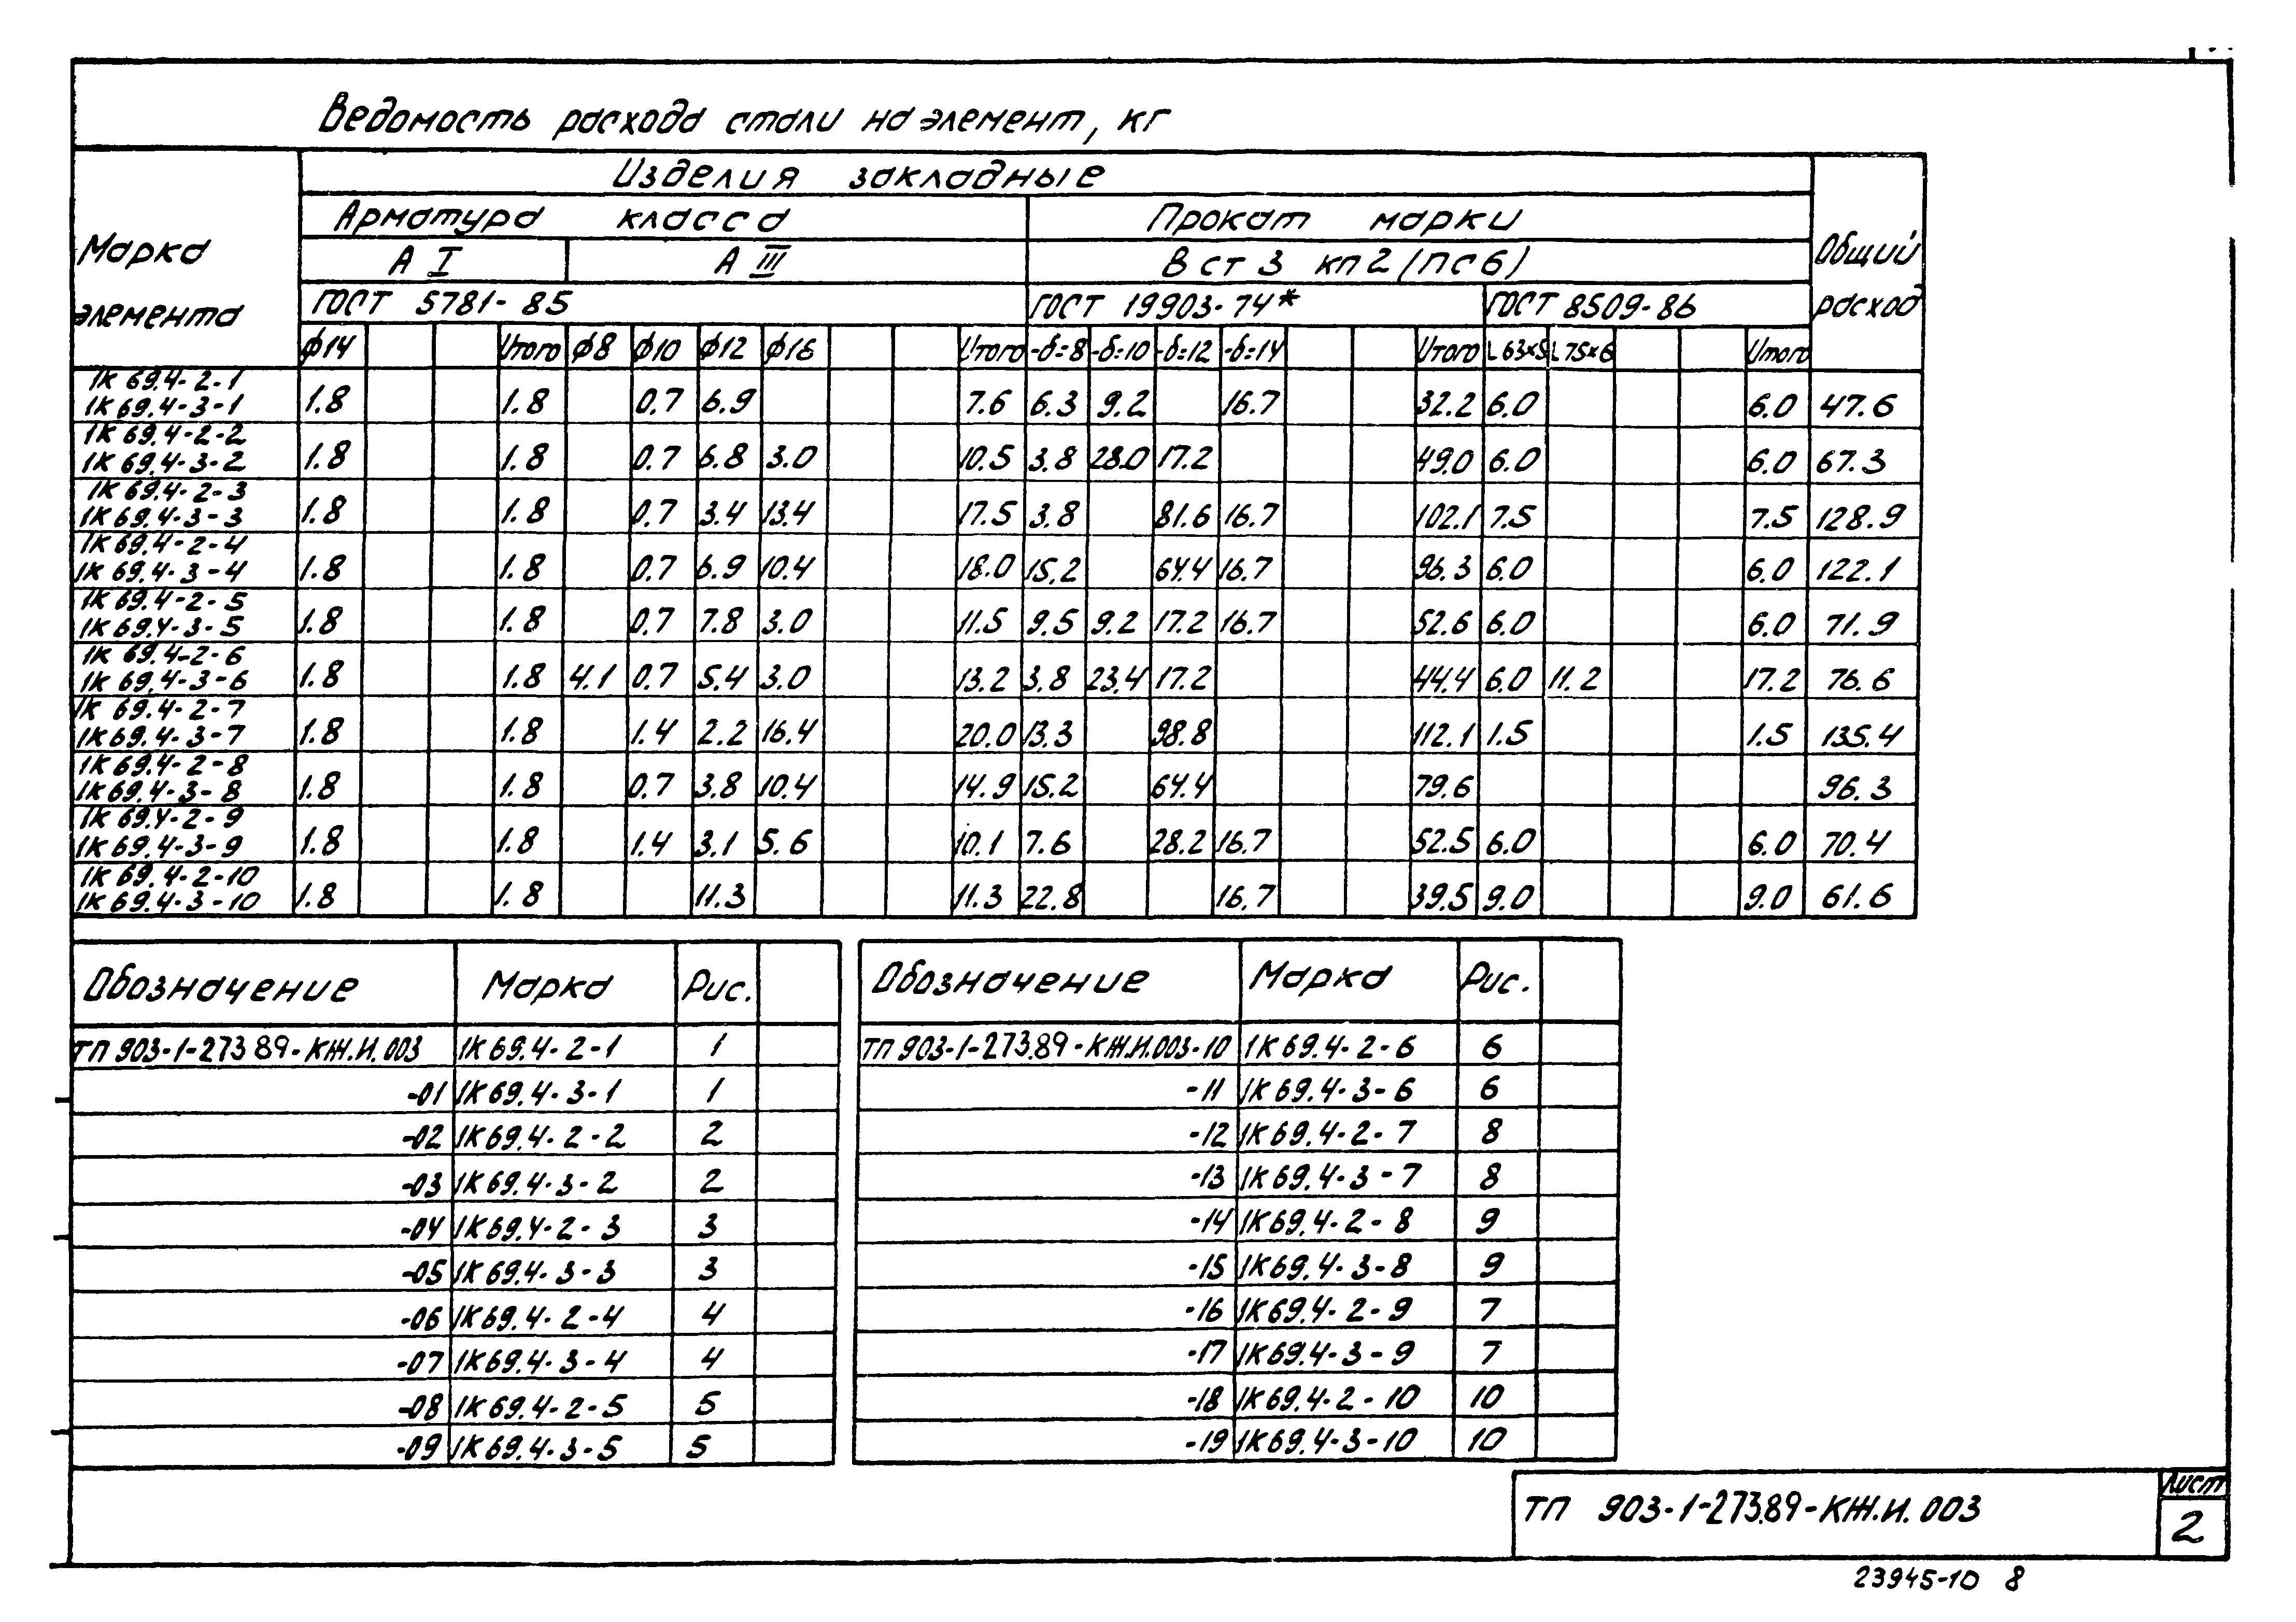 Ведомость расхода стали на элемент, кг
Марка элемента
Изделия закладные
Общий расход
Арматура класса
Прокат марки
А I
А III
В ст 3 кп 2 (пс 6)
ГОСТ 5781-85
ГОСТ 19903-74*
ГОСТ 8509-86
ф14 Итого ф8 ф10 ф12 ф16 Итого -δ=8 -δ=10 -δ=12 -δ=14 Итого L 63×5 L 75×6 Итого
1К 69.4-2-1
1К 69.4-3-1 1.8 1.8 0.7 6.9 7.6 6.3 9.2 16.7 32.2 6.0 6.0 47.6
1К 69.4-2-2
1К 69.4-3-2 1.8 1.8 0.7 6.8 3.0 10.5 3.8 28.0 17.2 49.0 6.0 6.0 67.3
1К 69.4-2-3
1К 69.4-3-3 1.8 1.8 0.7 3.4 13.4 17.5 3.8 81.6 16.7 102.1 7.5 7.5 128.9
1К 69.4-2-4
1К 69.4-3-4 1.8 1.8 0.7 6.9 10.4 18.0 15.2 64.4 16.7 96.3 6.0 6.0 122.1
1К 69.4-2-5
1К 69.4-3-5 1.8 1.8 0.7 7.8 3.0 11.5 9.5 9.2 17.2 16.7 52.6 6.0 6.0 71.9
1К 69.4-2-6
1К 69.4-3-6 1.8 1.8 4.1 0.7 5.4 3.0 13.2 3.8 23.4 17.2 44.4 6.0 11.2 17.2 76.6
1К 69.4-2-7
1К 69.4-3-7 1.8 1.8 1.4 2.2 16.4 20.0 13.3 98.8 112.1 1.5 1.5 135.4
1К 69.4-2-8
1К 69.4-3-8 1.8 1.8 0.7 3.8 10.4 14.9 15.2 64.4 79.6 96.3
1К 69.4-2-9
1К 69.4-3-9 1.8 1.8 1.4 3.1 5.6 10.1 7.6 28.2 16.7 52.5 6.0 6.0 70.4
1К 69.4-2-10
1К 69.4-3-10 1.8 1.8 11.3 11.3 22.8 16.7 39.5 9.0 9.0 61.6
Обозначение Марка Рис.
ТП 903-1-273.89-КЖ.И.003 1К 69.4-2-1 1
-01 1К 69.4-3-1 1
-02 1К 69.4-2-2 2
-03 1К 69.4-3-2 2
-04 1К 69.4-2-3 3
-05 1К 69.4-3-3 3
-06 1К 69.4-2-4 4
-07 1К 69.4-3-4 4
-08 1К 69.4-2-5 5
-09 1К 69.4-3-5 5
Обозначение Марка Рис.
ТП 903-1-273.89-КЖ.И.003-10 1К 69.4-2-6 6
-11 1К 69.4-3-6 6
-12 1К 69.4-2-7 8
-13 1К 69.4-3-7 8
-14 1К 69.4-2-8 9
-15 1К 69.4-3-8 9
-16 1К 69.4-2-9 7
-17 1К 69.4-3-9 7
-18 1К 69.4-2-10 10
-19 1К 69.4-3-10 10
ТП 903-1-273.89-КЖ.И.003
Лист
2
23945-10 8